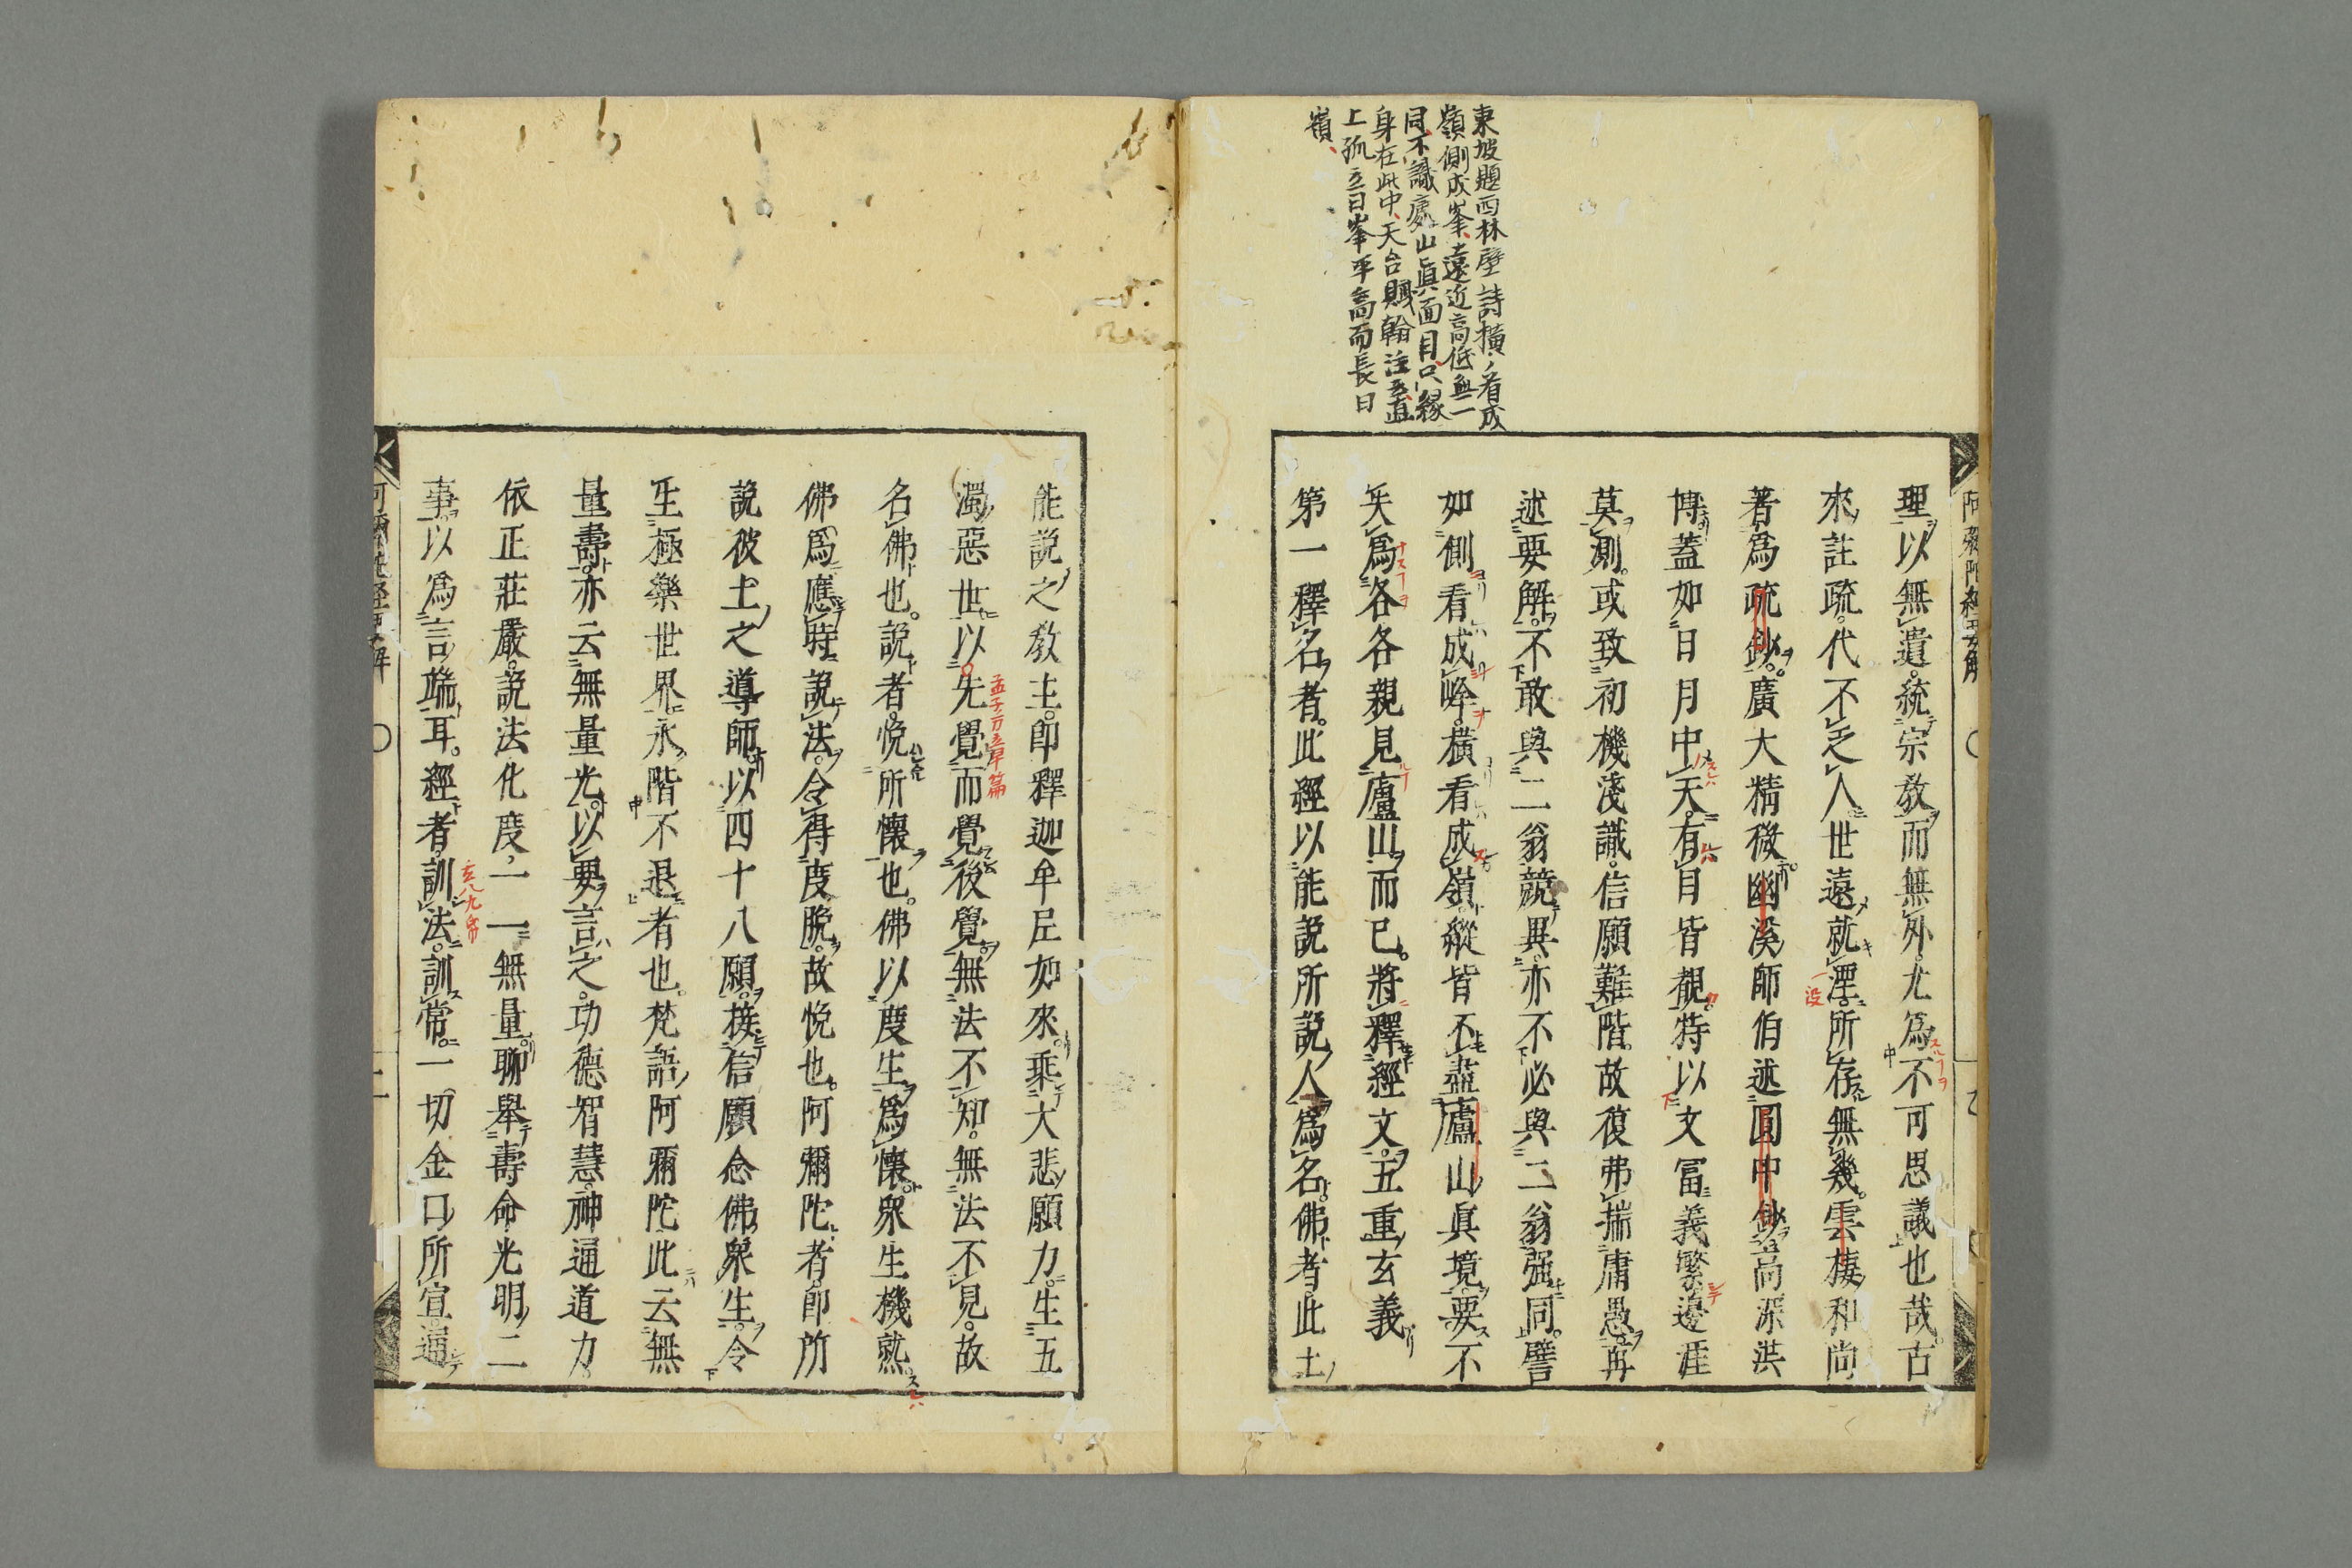 東坡題西林壁詩橫看成
嶺側成峯遠近高低無一
同不識廬山眞面目只縁
身在此中天台賜翰注云直
上孤立曰峯平高而長曰
嶺
理以無遺統宗教而無外尤爲不可思議也哉古
來註疏代不乏人世遠就湮所存無幾雲棲和尚
著爲疏鈔廣大精微幽溪師伯述圓中鈔高深洪
博蓋如日月中天有目皆覩特以文富義繁邊涯
莫測或致初機淺識信願難階故復弗揣庸愚再
述要解不敢與二翁競異亦不必與二翁强同譬
如側看成峰橫看成嶺縱皆不盡廬山眞境要不
失爲各各親見廬山而已將釋經文五重玄義
第一釋名者此經以能說所說人爲名佛者此土
能說之教主即釋迦牟尼如來乘大悲願力生五
濁惡世以先覺而覺後覺無法不知無法不見故
孟子万章篇
名佛也說者悅所懷也佛以度生爲懷衆生機熟
佛爲應時說法令得度脫故悅也阿彌陀者即所
說彼土之導師以四十八願接信願念佛衆生令
生極樂世界永階不退者也梵語阿彌陀此云無
量壽亦云無量光以要言之功德智慧神通道力
依正莊嚴說法化度一一無量聊舉壽命光明二
事以爲言端耳經者訓法訓常一切金口所宣通